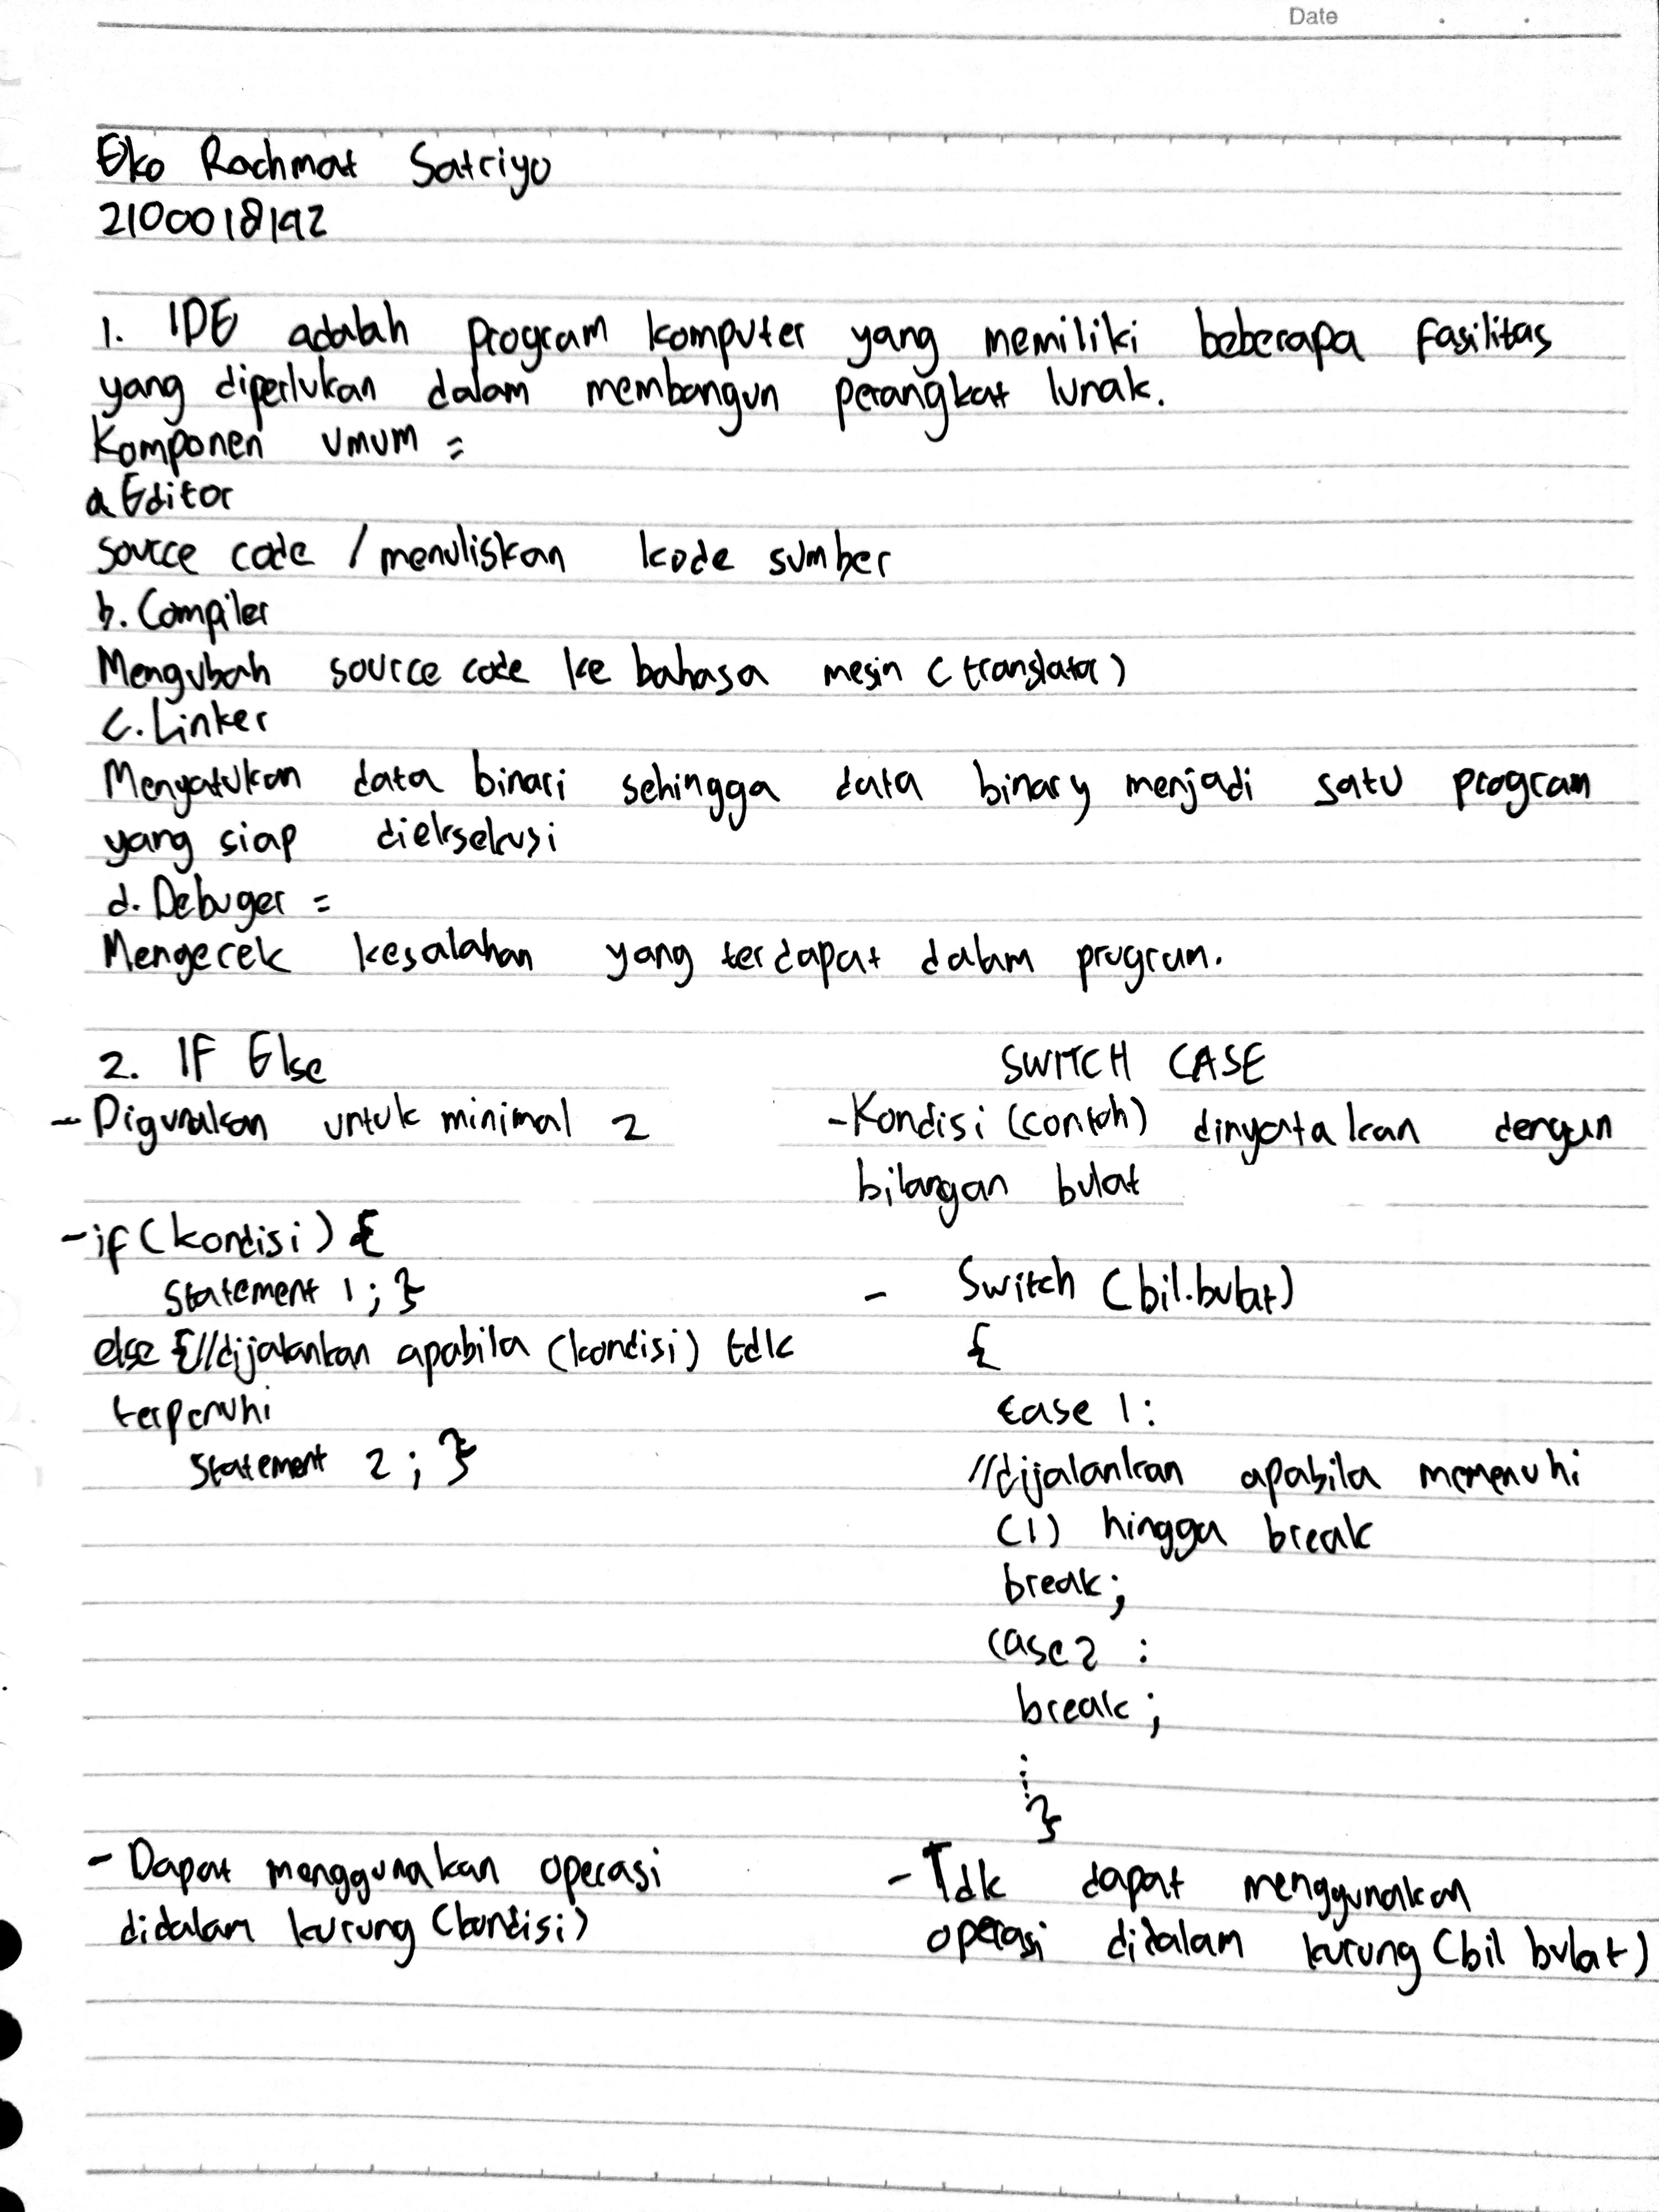 Date
Eko Rachmat Satriyo
2100018192
1. IDE adalah program komputer yang memiliki beberapa fasilitas
yang diperlukan dalam membangun perangkat lunak.
Komponen umum =
a Editor
source code / menuliskan kode sumber
b. Compiler
Mengubah source code ke bahasa mesin (translator)
c. Linker
Menyatukan data binari sehingga data binary menjadi satu program
yang siap dieksekusi
d. Debuger =
Mengecek kesalahan yang terdapat dalam program.
2. IF Else
- Digunakan untuk minimal 2
- if (kondisi) {
statement 1; }
else {//dijalankan apabila (kondisi) tdk
terpenuhi
statement 2; }
- Dapat menggunakan operasi
didalam kurung (kondisi)
SWITCH CASE
- Kondisi (contoh) dinyatakan dengan
bilangan bulat
- Switch (bil.bulat)
{
case 1:
//dijalankan apabila memenuhi
(1) hingga break
break;
case 2 :
break;
⋮
}
- Tdk dapat menggunakan
operasi didalam kurung (bil bulat)